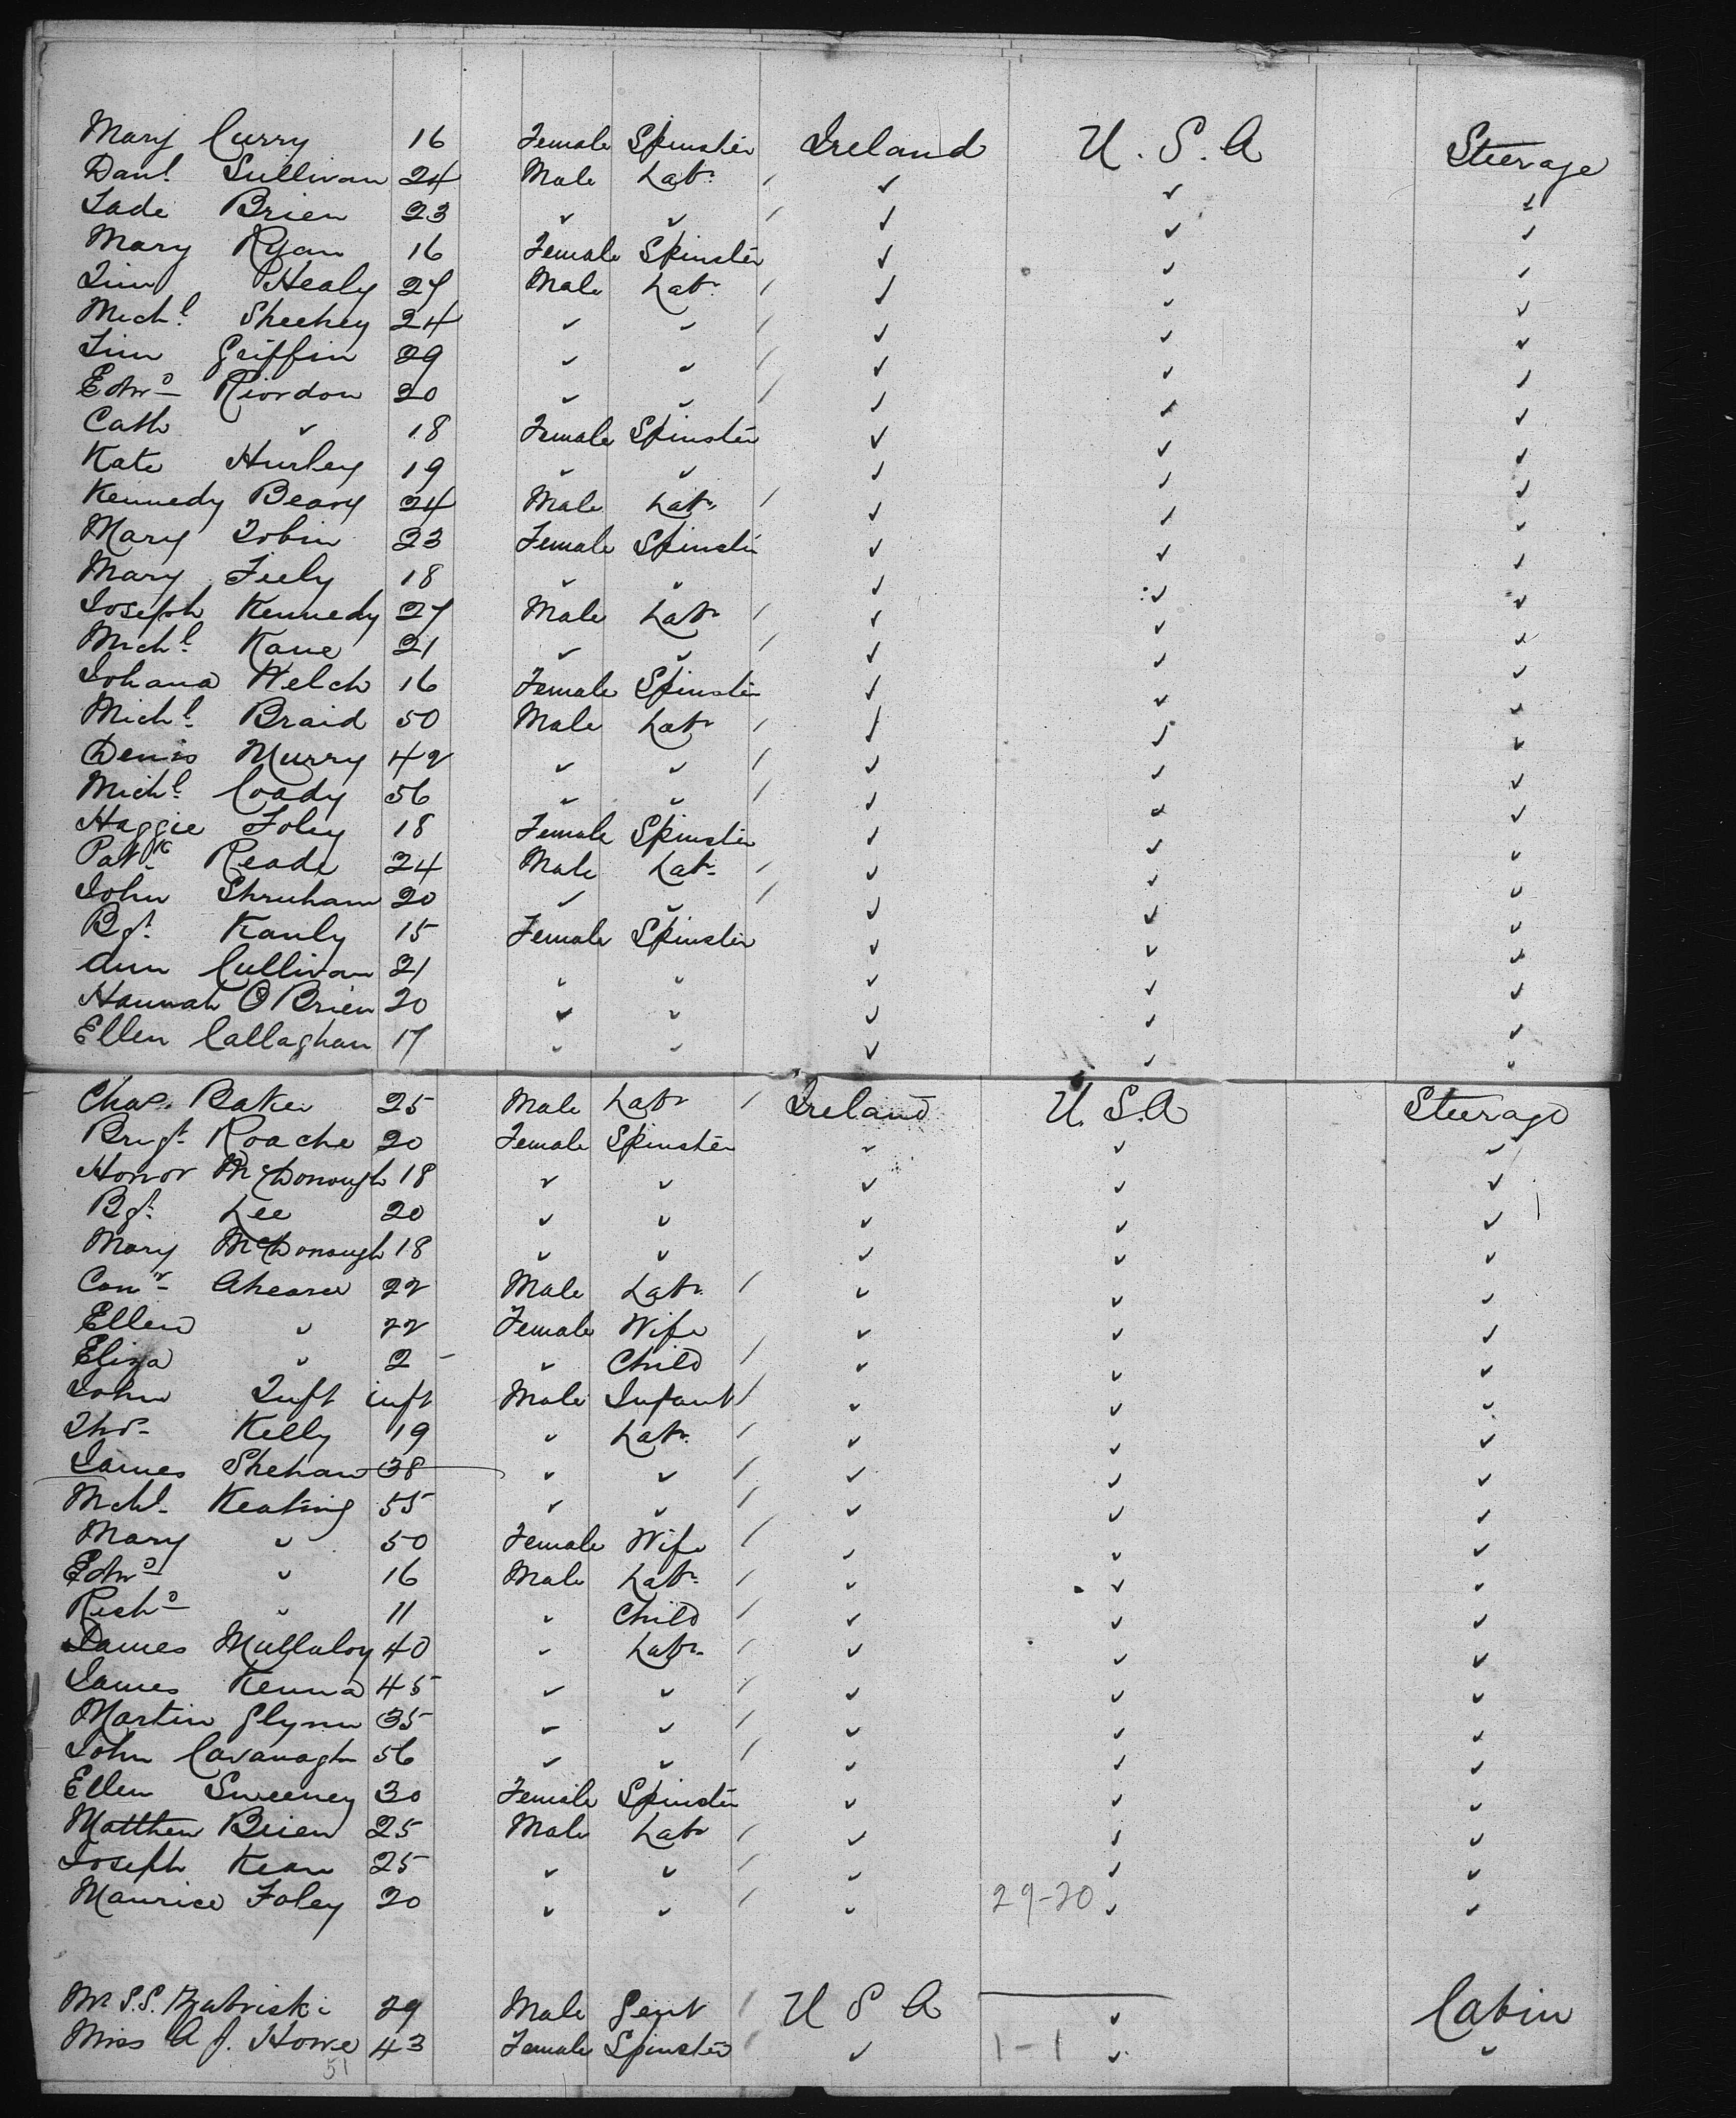 Mary Curry 16 Female Spinster Ireland U.S.A Steerage
Danl. Sullivan 24 Male Labr. / ✓ ✓ ✓
Jade Brien 23 ✓ ✓ / ✓ ✓ ✓
Mary Ryan 16 Female Spinster ✓ ✓ ✓
Jim Healy 27 Male Labr. / ✓ ✓ ✓
Michl. Sheehey 24 ✓ ✓ / ✓ ✓ ✓
Jim Griffin 29 ✓ ✓ / ✓ ✓ ✓
Edwd Riordon 20 ✓ ✓ / ✓ ✓ ✓
Cath ✓ 18 Female Spinster ✓ ✓ ✓
Kate Hurley 19 ✓ ✓ ✓ ✓ ✓
Kennedy Beary 24 Male Labr. / ✓ ✓ ✓
Mary Tobin 23 Female Spinster ✓ ✓ ✓
Mary Feely 18 ✓ ✓ ✓ ✓ ✓
Joseph Kennedy 27 Male Labr / ✓ ✓ ✓
Michl. Kane 21 ✓ ✓ / ✓ ✓ ✓
Johana Welch 16 Female Spinster ✓ ✓ ✓
Michl. Braid 50 Male Labr / ✓ ✓ ✓
Denis Murry 42 ✓ ✓ / ✓ ✓ ✓
Michl. Coady 56 ✓ ✓ / ✓ ✓ ✓
Haggie Foley 18 Female Spinster ✓ ✓ ✓
Patk Reade 24 Male Labr. / ✓ ✓ ✓
John 20 ✓ ✓ / ✓ ✓ ✓
Bgt. Kanly 15 Female Spinster ✓ ✓ ✓
Ann Cullivan 21 ✓ ✓ ✓ ✓ ✓
Hannah O Brien 20 ✓ ✓ ✓ ✓ ✓
Ellen Callaghan 17 ✓ ✓ ✓ ✓ ✓
Chas. Baker 25 Male Labr / Ireland U.S.A Steerage
Brigt. Roache 20 Female Spinster ✓ ✓ ✓
Honor McDonough 18 ✓ ✓ ✓ ✓ ✓
Bgt. Lee 20 ✓ ✓ ✓ ✓ ✓
Mary McDonough 18 ✓ ✓ ✓ ✓ ✓
Conr Ahearn 22 Male Labr. / ✓ ✓ ✓
Ellen ✓ 22 Female Wife ✓ ✓ ✓
Eliza ✓ 2 ✓ Child / ✓ ✓ ✓
John Tuft inft Male Infant / ✓ ✓ ✓
Thos. Kelly 19 ✓ Labr. / ✓ ✓ ✓
James Shehan 38 ✓ ✓ / ✓ ✓ ✓
Mchl. Keating 55 ✓ ✓ / ✓ ✓ ✓
Mary ✓ 50 Female Wife / ✓ ✓ ✓
Edwd ✓ 16 Male Labr. / ✓ ✓ ✓
Richd ✓ 11 ✓ Child / ✓ ✓ ✓
James Mullaloy 40 ✓ Labr. / ✓ ✓ ✓
James Kenna 45 ✓ ✓ / ✓ ✓ ✓
Martin Glynn 35 ✓ ✓ / ✓ ✓ ✓
John Cavanagh 56 ✓ ✓ / ✓ ✓ ✓
Ellen Sweeney 30 Female Spinster ✓ ✓ ✓
Matthew Brien 25 Male Labr / ✓ ✓ ✓
Joseph Kean 25 ✓ ✓ / ✓ ✓ ✓
Maurice Foley 20 ✓ ✓ / ✓ 29-20 ✓ ✓
Mr S.S. Zabriski 29 Male Gent / U S A ✓ Cabin
Miss A J. Howe 43 Female Spinster / ✓ 1-1 ✓ ✓
51